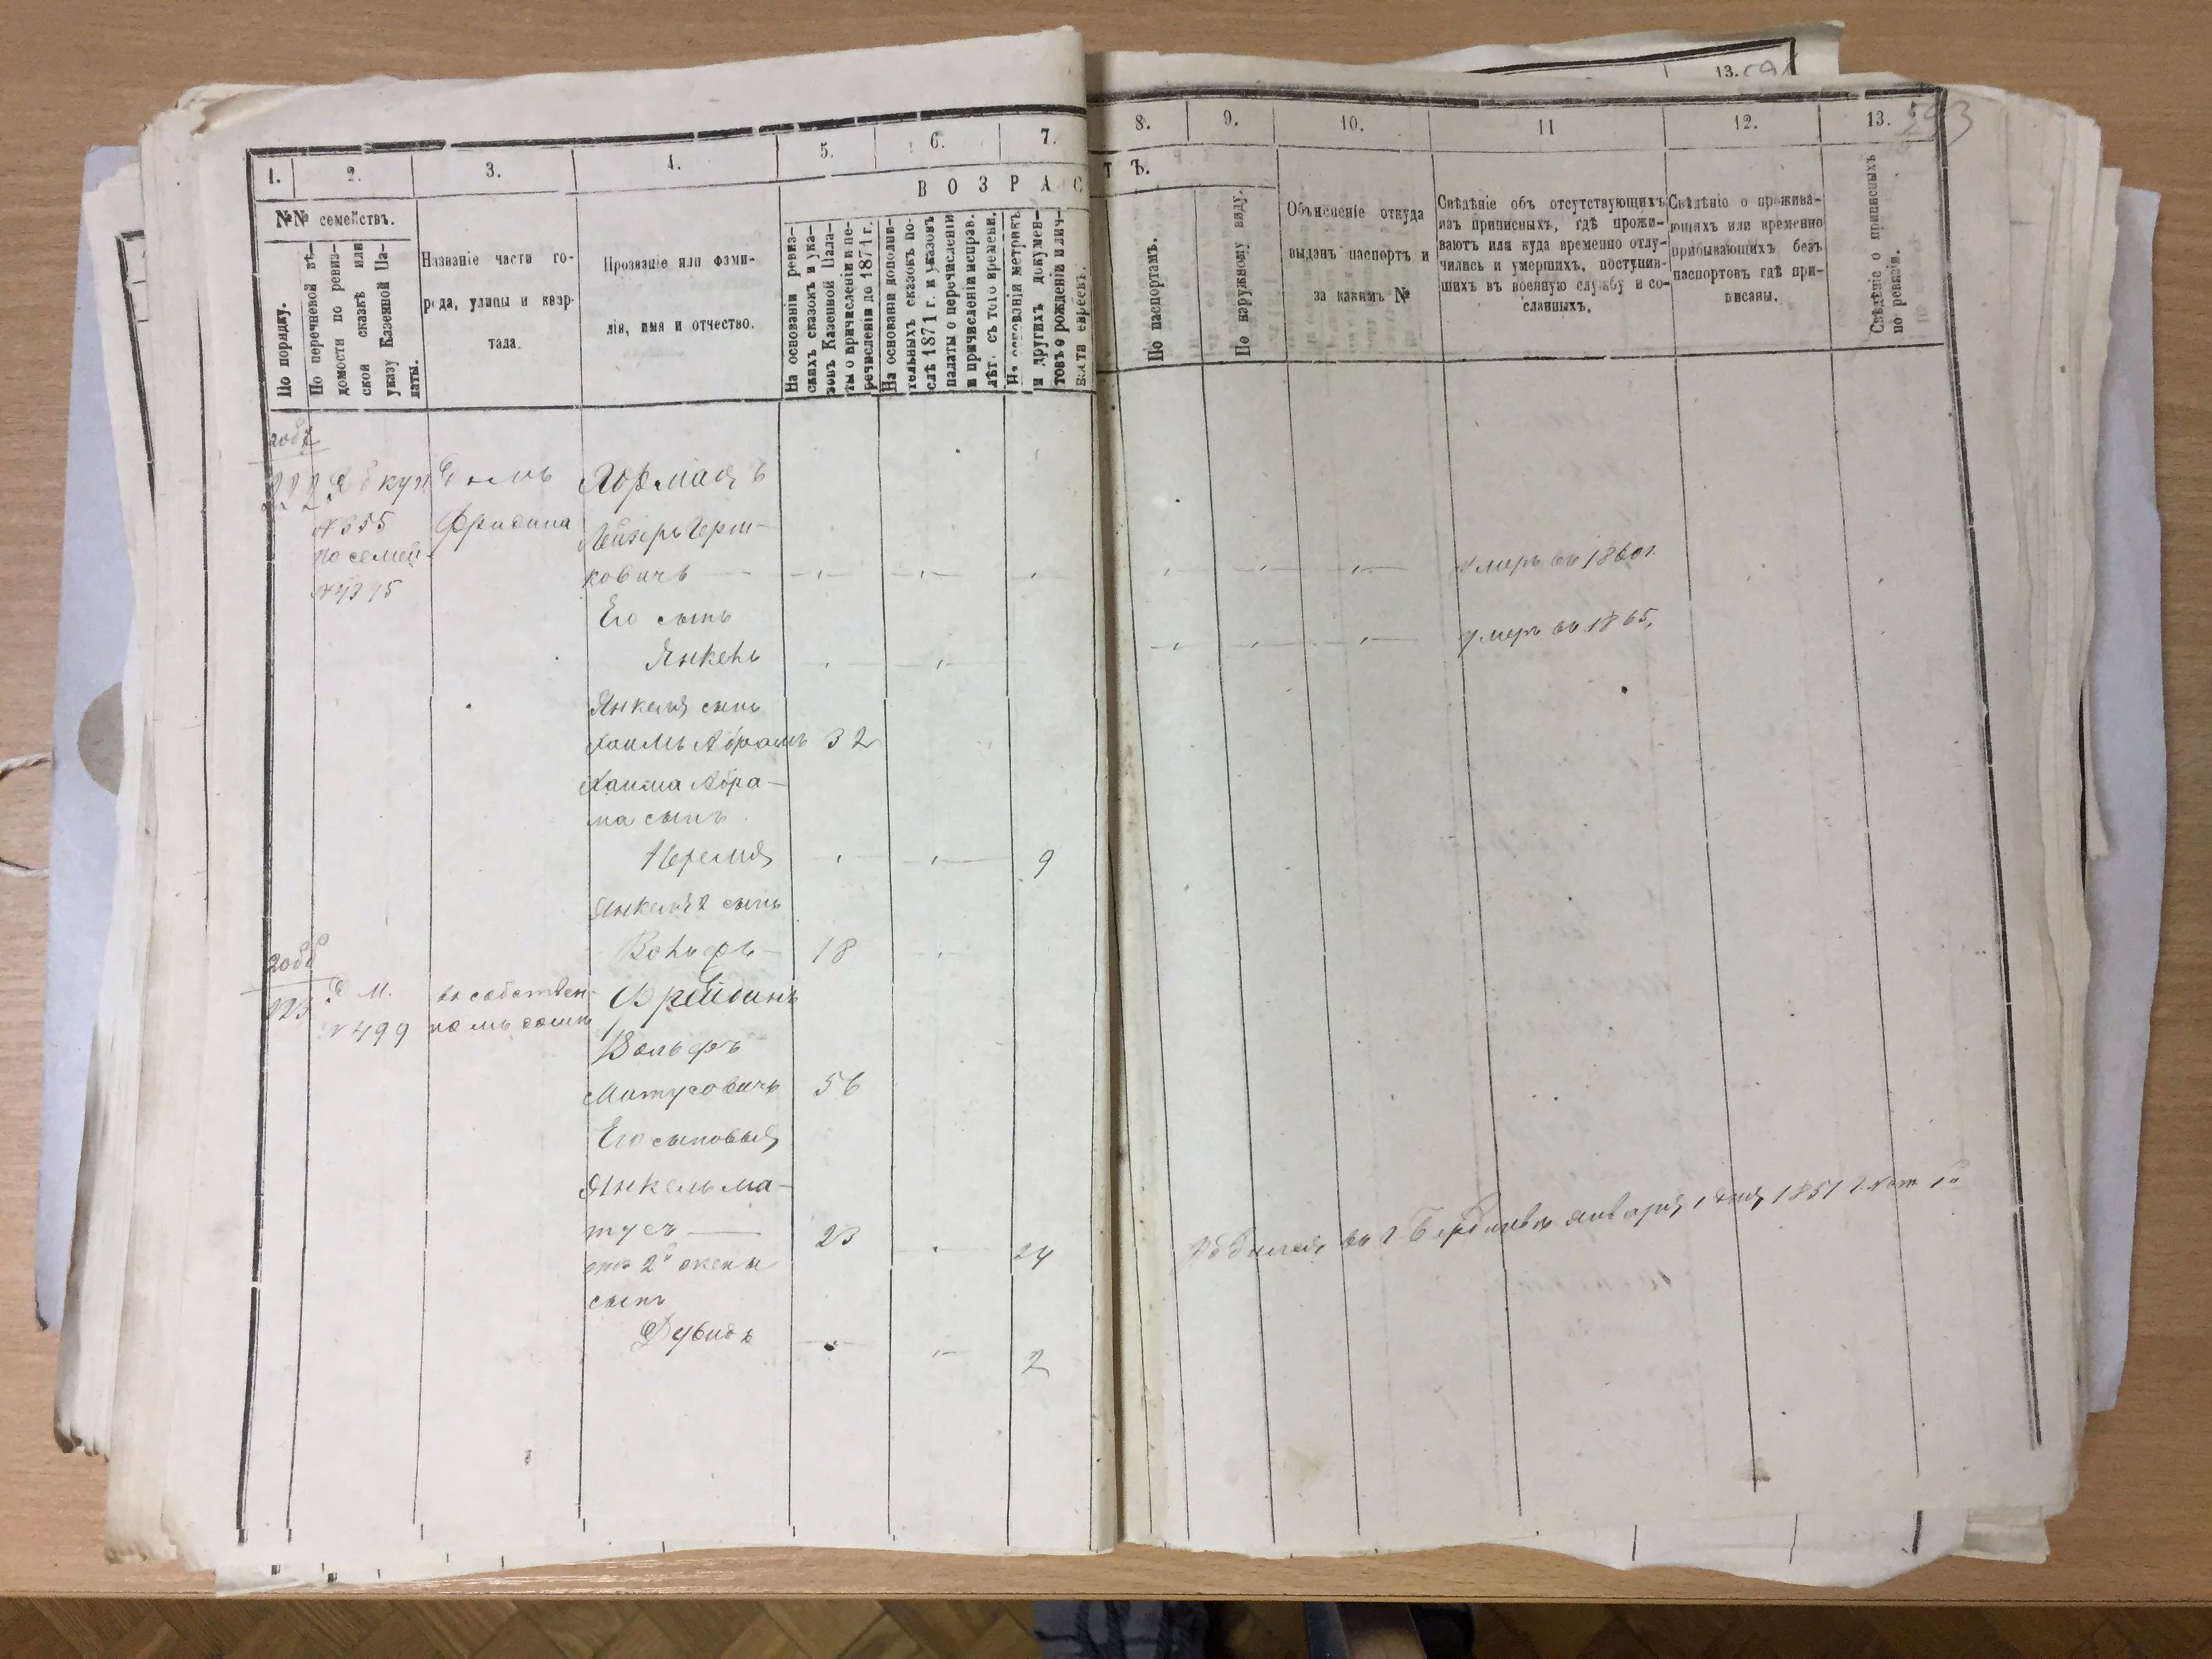 13.
1.
2.
3.
4.
5.
6.
7.
8.
9.
10.
11
12.
13.
593
ВОЗРАС
ТЪ.
№№ семействъ.
По порядку.
По перечневой вѣ-
домости по ревиз-
ской сказкѣ или
указу Казенной Па-
латы.
Названіе части го-
рода, улицы и квар-
тала.
Прозваніе или фами-
лія, имя и отчество.
На основаніи ревиз-
скихъ сказокъ и ука-
зовъ Казенной Пала-
ты о причисленіи и пе-
речисленіи до 1871 г.
На основаніи дополни-
тельныхъ сказокъ по-
слѣ 1871 г. и указовъ
палаты о перечисленіи
и причисленіи исправ.
лѣт. съ того времени.
На основаніи метрикъ
и другихъ докумен-
товъ о рожденіи и лич-
ности евреевъ.
По паспортамъ.
По наружному виду.
Объясненіе откуда
выданъ паспортъ и
за какимъ №
Свѣдѣніе об отсутствующихъ
изъ приписныхъ, гдѣ прожи-
ваютъ или куда временно отлу-
чились и умершихъ, поступив-
шихъ въ военную службу и со-
сланныхъ.
Свѣдѣніе о прожива-
ющихъ или временно
прибывающихъ безъ
паспортовъ гдѣ при-
писаны.
Свѣдѣніе о приписныхъ
по ревизіи.
222
№ 355
Фридина
по семей-
Лейзеръ Герш-
ковичъ
умеръ въ 1860 г.
Его сынъ
Янкель
умеръ въ 1865,
Янкеля сынъ
Хаимъ Абрамъ 32
Хаима Абра-
ма сынъ
Иеремія 9
Янкеля 2 сынъ
Вольфъ 18
223
№ 499
въ собствен-
номъ домѣ
Фрейдинъ
Вольфъ
Матусовичъ 56
Его сыновья
Янкель Ма-
тусъ 23 24
Родился въ г Бердичевѣ января 1 дня 1851 г.
отъ 2й жены
сынъ
Дувидъ 2